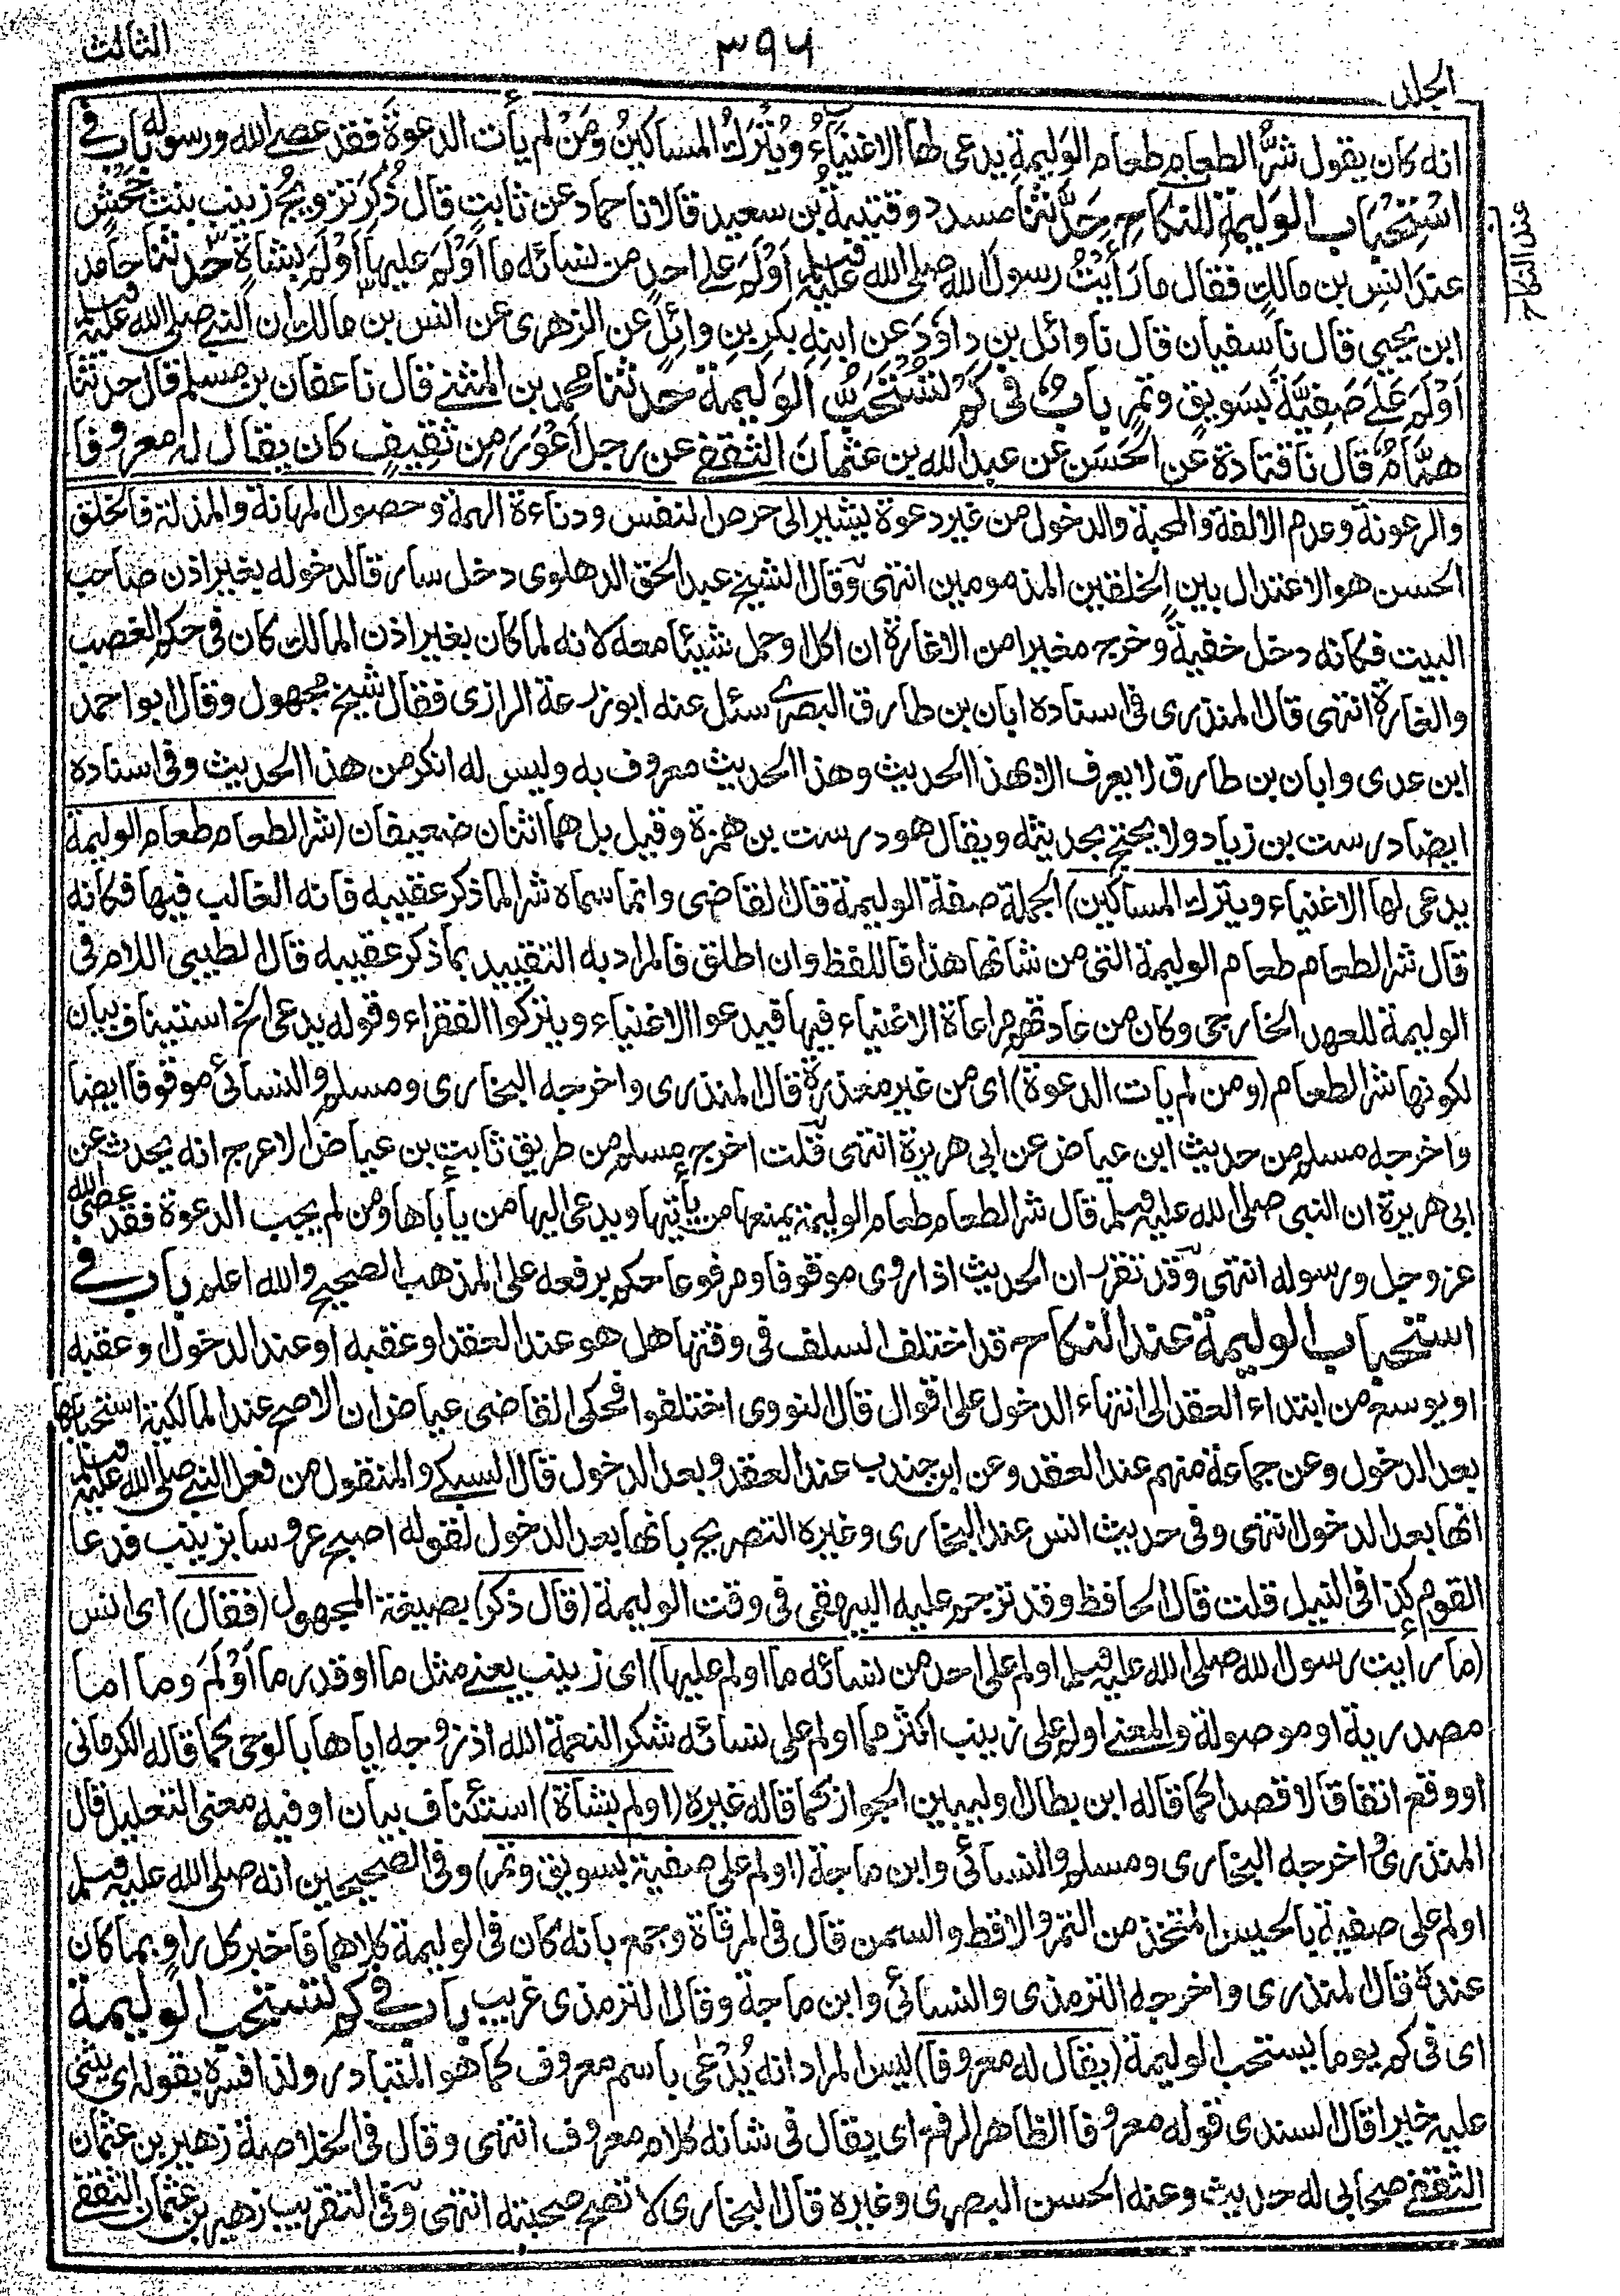 الثالث
٣٩٥
المجلد
انه كان يقول شَرُّ الطعام طعام الوَلِيمةِ يدعى لها الاغنياءُ ويُتْرَكُ المساكينُ ومَنْ لم يأت الدعوةَ فقد عصى الله ورسوله باب في
استحباب الوَلِيمةِ للنكاح حدَّثنا مسدد وقتيبةُ بن سعيد قالا نا حماد عن ثابتٍ قال ذُكِرَ تزويجُ زينب بنت جَحْشٍ
عند انس بن مالكٍ فقال ما رَأَيْتُ رسول الله صلى الله عليه وسلم أَوْلَمَ على احدٍ من نسائه ما أَوْلَمَ عليها أَوْلَمَ بشاةٍ حدثنا حامد
ابن يحيى قال نا سفيان قال نا وائل بن داوَدَ عن ابنه بكرِ بنِ وائِلٍ عن الزهرى عن انس بن مالك ان النبى صلى الله عليه وسلم
أَوْلَمَ عَلَى صَفِيَّةَ بِسَوِيقٍ وتَمْرٍ بابٌ فى كَمْ تُسْتَحَبُّ الوَلِيمَةُ حدثنا محمد بن المثنى قال نا عفان بن مسلم قال حدثنا
همَّامٌ قال نا قتادة عن الحَسَنِ عن عبد الله بن عثمانَ الثقفى عن رجل أَعْوَرَ مِن ثَقِيفٍ كان يقال له معروفا
عند النكاح
والرعونة وعدم الالفة والمحبة والدخول من غير دعوة يشير الى حرص النفس ودناءة الهمة وحصول المهانة والمذلة فالخلق
الحسن هو الاعتدال بين الخلقين المذمومين انتهى وقال الشيخ عبد الحق الدهلوى دخل سارقا لدخوله بغير اذن صاحب
البيت فكانه دخل خفية وخرج مغيرا من الاغارة ان اكل او حمل شيئا معه لانه لما كان بغير اذن المالك كان فى حكم الغصب
والغارة انتهى قال المنذرى فى اسناده ابان بن طارق البصرى سئل عنه ابو زرعة الرازى فقال شيخ مجهول وقال ابو احمد
ابن عدى وابان بن طارق لا يعرف الا بهذا الحديث وهذا الحديث معروف به وليس له انكر من هذا الحديث وفى اسناده
ايضا درست بن زياد ولا يحتج بحديثه ويقال هو درست بن همزة وقيل بل هما اثنان ضعيفان (شر الطعام طعام الوليمة
يدعى لها الاغنياء ويترك المساكين) الجملة صفة الوليمة قال القاضى وانما سماه شرا لما ذكر عقيبه فانه الغالب فيها فكانه
قال شر الطعام طعام الوليمة التى من شانها هذا فاللفظ وان اطلق فالمراد به التقييد بما ذكر عقيبه قال الطيبى اللام فى
الوليمة للعهد الخارجى وكان من عادتهم مراعاة الاغنياء فيها فيدعوا الاغنياء ويتركوا الفقراء وقوله يدعى الخ استيناف بيان
لكونها شر الطعام (ومن لم يات الدعوة) اى من غير معذرة قال المنذرى واخرجه البخارى ومسلم والنسائى موقوفا ايضا
واخرجه مسلم من حديث ابن عياض عن ابى هريرة انتهى قلت اخرجه مسلم من طريق ثابت بن عياض الاعرج انه يحدث عن
ابى هريرة ان النبى صلى الله عليه وسلم قال شر الطعام طعام الوليمة يمنعها من يأتيها ويدعى اليها من يأباها ومن لم يجب الدعوة فقد عصى الله
عز وجل ورسوله انتهى وقد تقرر ان الحديث اذا روى موقوفا ومرفوعا حكم برفعه على المذهب الصحيح والله اعلم باب في
استحباب الوليمة عند النكاح قد اختلف السلف فى وقتها هل هو عند العقد او عقبه او عند الدخول او عقبه
او يوسع من ابتداء العقد الى انتهاء الدخول على اقوال قال النووى اختلفوا فحكى القاضى عياض ان الاصح عند المالكية استحبابها
بعد الدخول وعن جماعة منهم عند العقد وعن ابن جندب عند العقد وبعد الدخول قال السبكى والمنقول من فعل النبى صلى الله عليه وسلم
انها بعد الدخول انتهى وفى حديث انس عند البخارى وغيره التصريح بانها بعد الدخول لقوله اصبح عروسا بزينب فدعا
القوم كذا فى النيل قلت قال الحافظ وقد ترجم عليه البيهقى فى وقت الوليمة (قال ذكر) بصيغة المجهول (فقال) اى انس
(ما رأيت رسول الله صلى الله عليه وسلم اولم على احد من نسائه ما اولم عليها) اى زينب يعنى مثل ما او قدر ما أَوْلَمَ وما اما
مصدرية او موصولة والمعنى اولم على زينب اكثر مما اولم على نسائه شكرا لنعمة الله اذ زوجه اياها بالوحى كما قاله الكرمانى
او وقع اتفاقا لا قصدا كما قاله ابن بطال او ليبين الجواز كما قاله غيره (اولم بشاة) استئناف بيان او فيه معنى التعليل قال
المنذرى اخرجه البخارى ومسلم والنسائى وابن ماجة (اولم على صفية بسويق وتمر) وفى الصحيحين انه صلى الله عليه وسلم
اولم على صفية بالحيس المتخذ من التمر والاقط والسمن قال فى المرقاة وجمع بانه كان فى الوليمة كلاهما فاخبر كل راو بما كان
عنده قال المنذرى واخرجه الترمذى والنسائى وابن ماجة وقال الترمذى غريب باب في كم تستحب الوليمة
اى فى كم يوما يستحب الوليمة (يقال له معروفا) ليس المراد انه يُدْعَى باسم معروف كما هو المتبادر ولذا فسره بقوله اى يثنى
عليه خيرا قال السندى قوله معروفا الظاهر الرفع اى يقال فى شانه كلام معروف انتهى وقال فى الخلاصة زهير بن عثمان
الثقفى صحابى له حديث وعنه الحسن البصرى وغيره قال البخارى لا تصح صحبته انتهى وفى التقريب زهير بن عثمان الثقفى